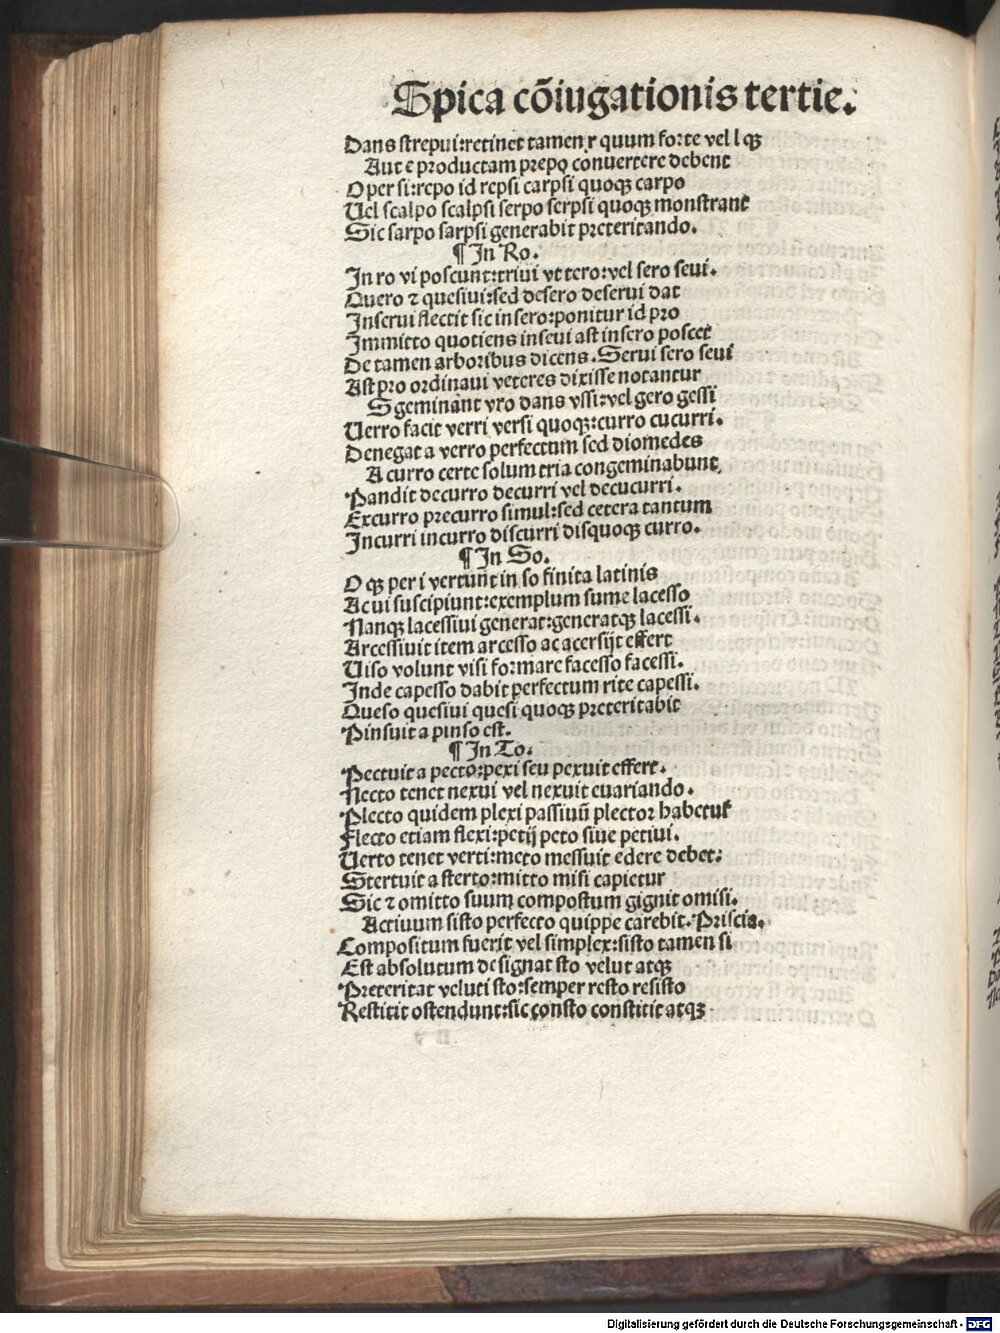 Spica cõiugationis tertie.
Dans strepui:retinet tamen r quum forte vel l qꝫ
Aut e productam prepo conuertere debent
O per si:repo id repsi carpsi quoqꝫ carpo
Uel scalpo scalpsi serpo serpsi quoqꝫ monstrant
Sic sarpo sarpsi generabit preteritando.
¶ In Ro.
In ro vi poscunt:triui vt tero:vel sero seui.
Quero ⁊ quesiui:sed desero deserui dat
Inserui flectit sic insero:ponitur id pro
Immitto quotiens inseui ast insero poscet
De tamen arboribus dicens.Serui sero seui
Ast pro ordinaui veteres dixisse notantur
S geminãnt vro dans vssi:vel gero gessi
Uerro facit verri versi quoqꝫ:curro cucurri.
Denegat a verro perfectum sed diomedes
A curro certe solum tria congeminabunt
Pandit decurro decurri vel decucurri.
Excurro precurro simul:sed cetera tantum
Incurri incurro discurri disquoqꝫ curro.
¶ In So.
O qꝫ per i vertunt in so finita latinis
Ac ui suscipiunt:exemplum sume lacesso
Nanqꝫ lacessiui generat:generatqꝫ lacessi.
Arcessiuit item arcesso ac acersijt effert
Uiso volunt visi formare facesso facessi.
Inde capesso dabit perfectum rite capessi.
Queso quesiui quesi quoqꝫ preteritabit
Pinsuit a pinso est.
¶ In To.
Pectuit a pecto:pexi seu pexuit effert.
Necto tenet nexui vel nexuit euariando.
Plecto quidem plexi passiuũ plector habetur
Flecto etiam flexi:petij peto siue petiui.
Uerto tenet verti:meto messuit edere debet:
Stertuit a sterto:mitto misi capietur
Sic ⁊ omitto suum compostum gignit omisi.
Actiuum sisto perfecto quippe carebit.Priscia.
Compositum fuerit vel simplex:sisto tamen si
Est absolutum designat sto velut atqꝫ
Preteritat veluti sto:semper resto resisto
Restitit ostendunt:sic consto constitit atqꝫ
Digitalisierung gefördert durch die Deutsche Forschungsgemeinschaft - DFG